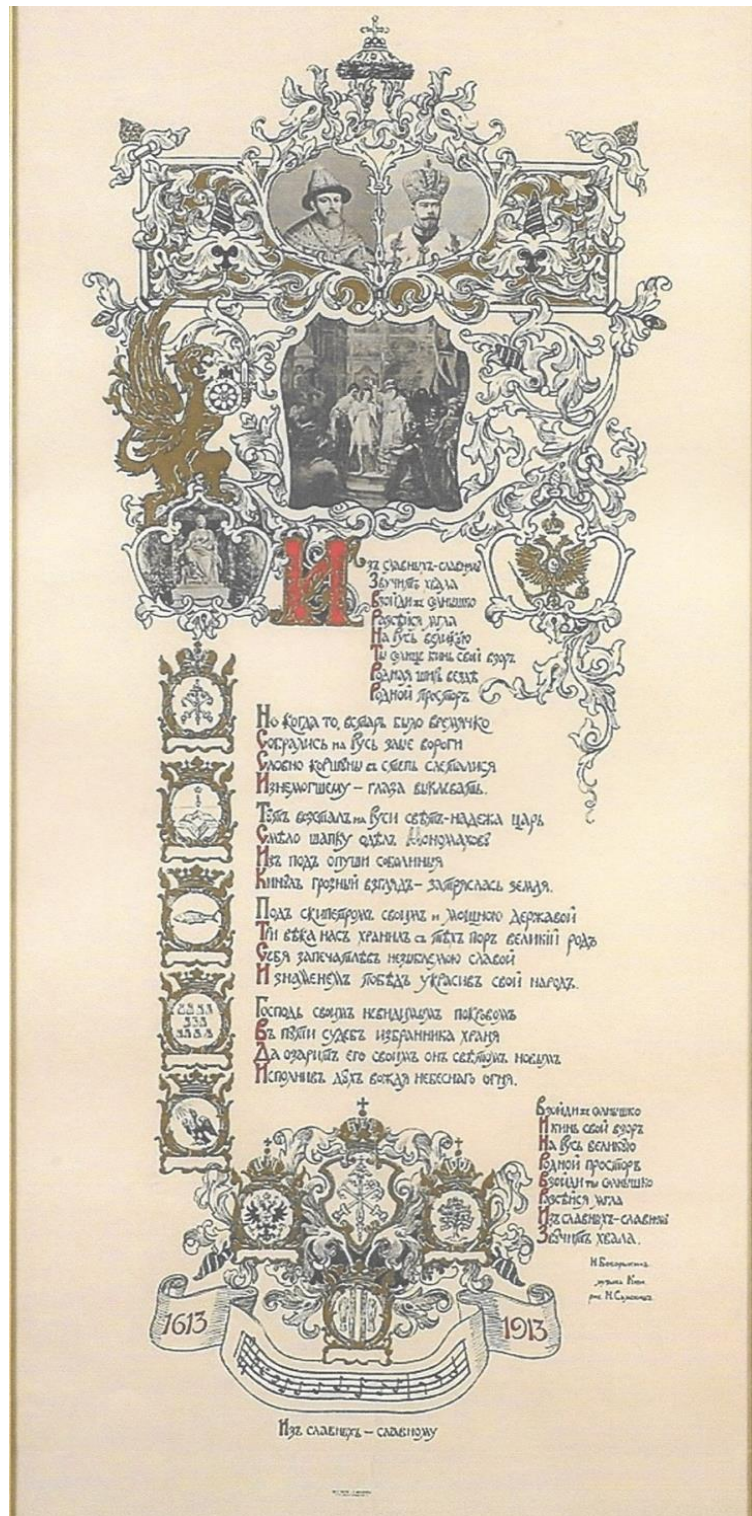 Изъ славныхъ-славному
Звучитъ хвала
Взойди же солнышко
Разсѣйся мгла
На Русь великую
Ты солнце кинь свой взоръ
Родная ширь вездѣ
Родной просторъ
Но когда то, встарь было времячко
Собрались на Русь злые вороги
Словно коршуны въ степь слеталися
Изнемогшему – глаза выклевать.
Тутъ возсталъ на Руси свѣтъ-надежа царь
Смѣло шапку одѣлъ Мономахову
Изъ подъ опуши соболиныя
Кинулъ грозный взглядъ – затряслась земля.
Подъ скипетромъ своимъ и мощною державой
Три вѣка насъ хранилъ съ тѣхъ поръ великій родъ
Себя запечатлѣвъ незыблемою славой
И знаменемъ побѣдъ украсивъ свой народъ.
Господь своимъ невидимымъ покровомъ
Въ пути судебъ избранника храня
Да озаритъ его своимъ онъ свѣтомъ новымъ
Исполнивъ духъ вождя небеснаго огня.
Взойди же солнышко
И кинь свой взоръ
На Русь великую
Родной просторъ
Взойди ты солнышко
Разсѣйся мгла
Изъ славныхъ-славному
Звучитъ хвала.
музыка
рис. Н. Самокишъ
1613 1913
Изъ славныхъ – славному